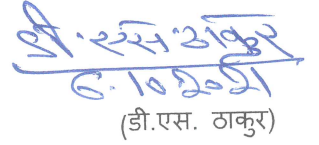 डी.एस.ठाकुर
6.10.2021
(डी.एस. ठाकुर)